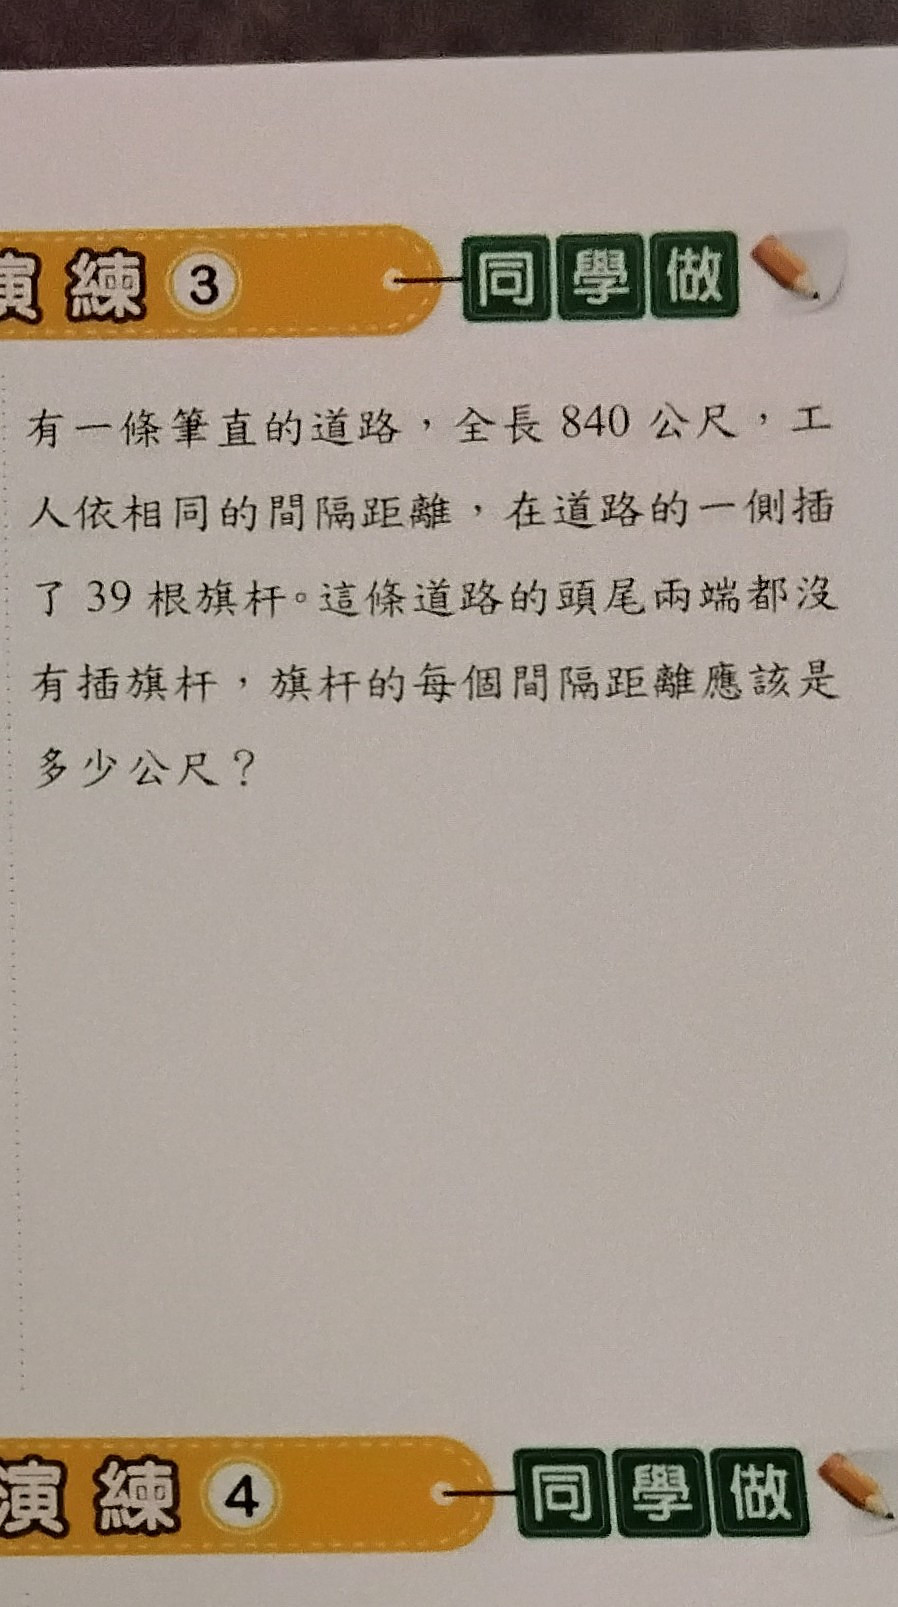 演練 3 同學做
有一條筆直的道路，全長 840 公尺，工
人依相同的間隔距離，在道路的一側插
了 39 根旗杆。這條道路的頭尾兩端都沒
有插旗杆，旗杆的每個間隔距離應該是
多少公尺？
演練 4 同學做